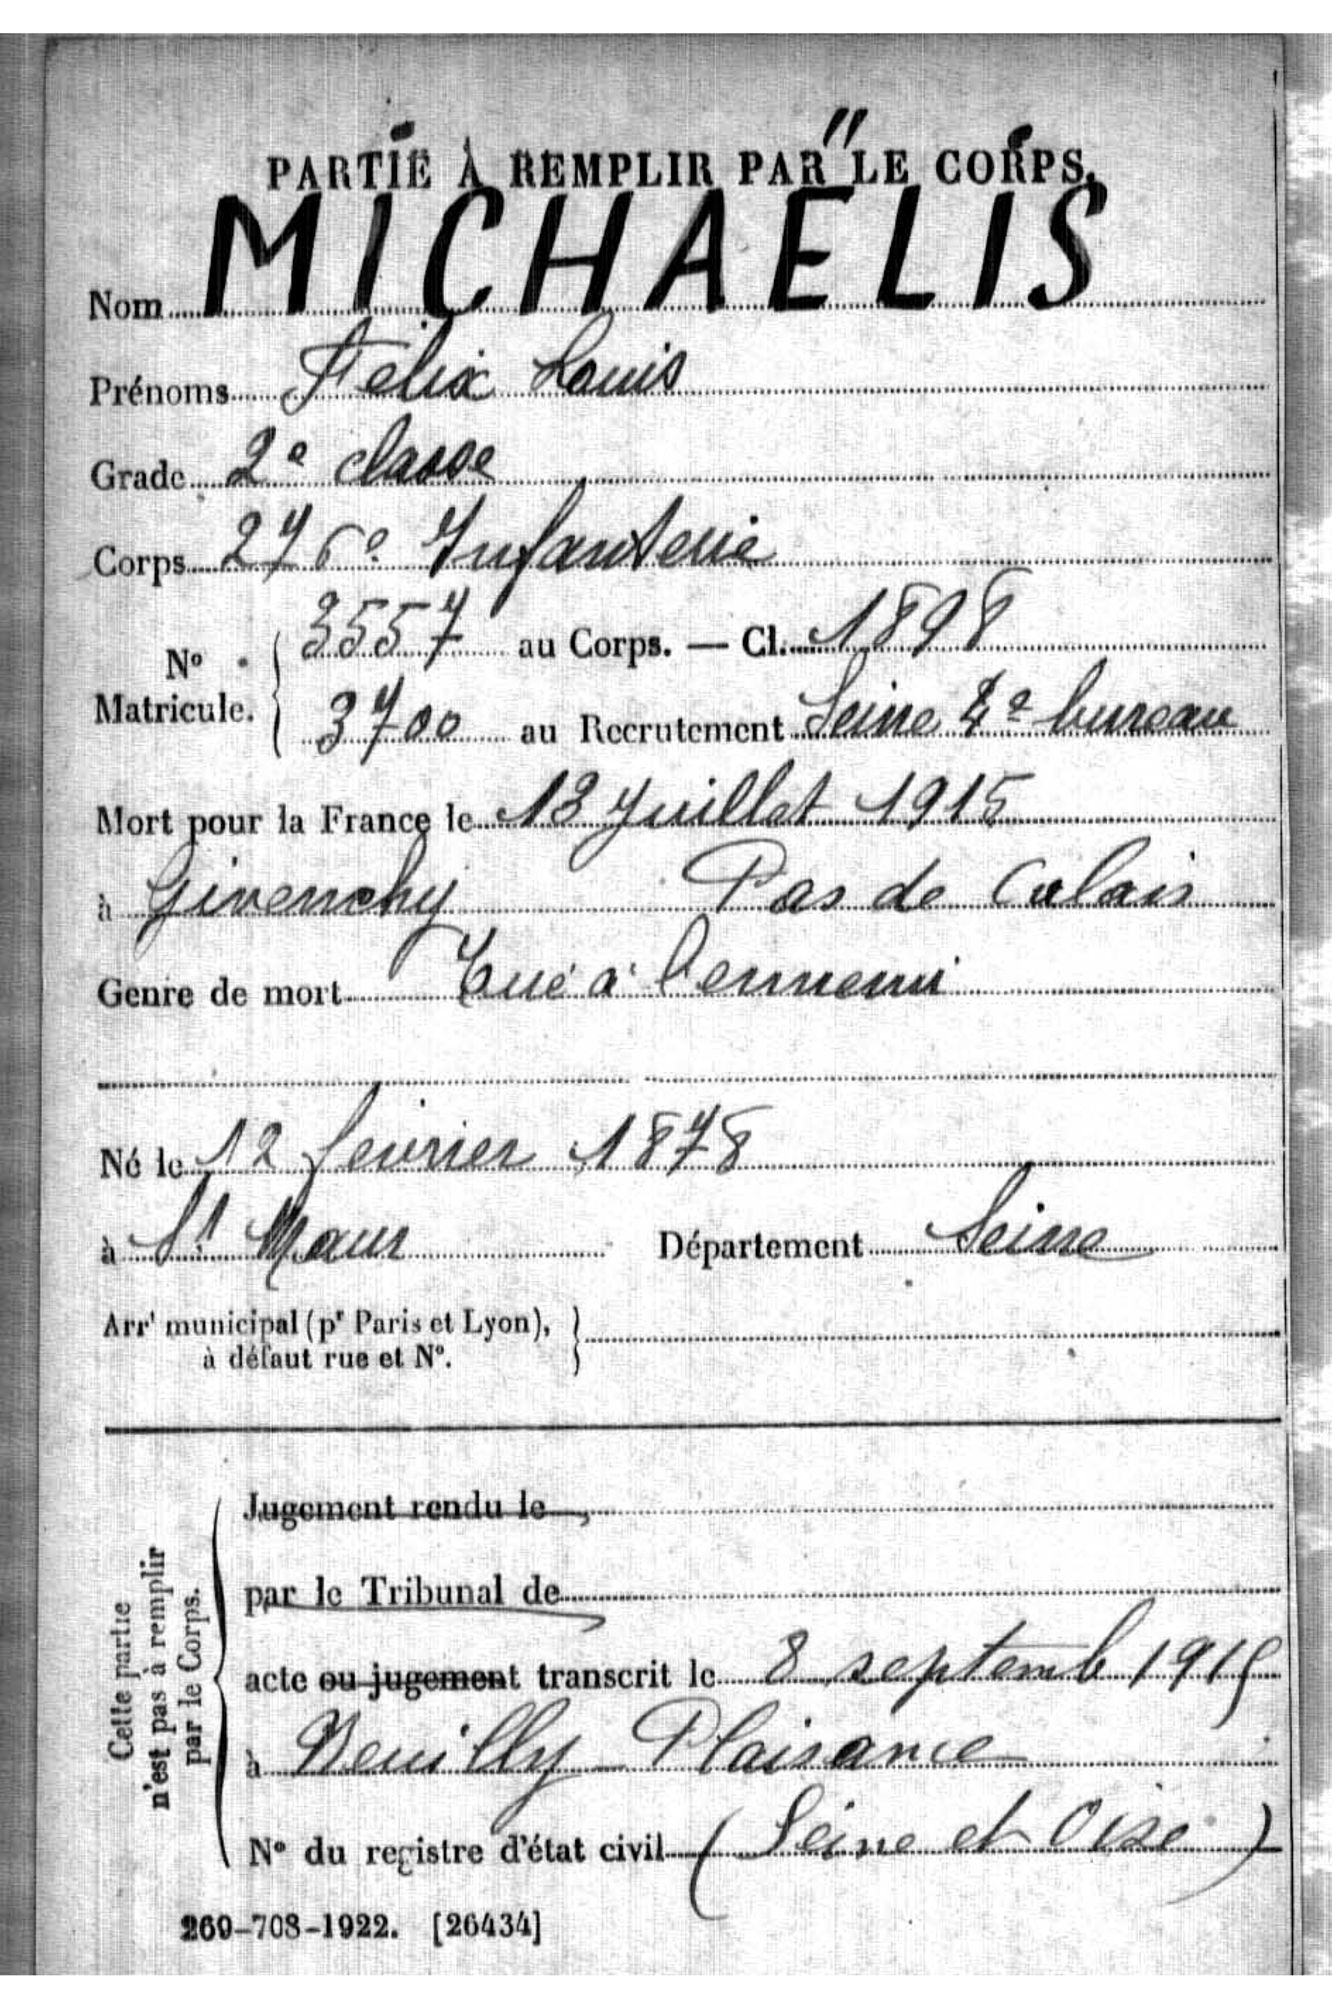 PARTIE À REMPLIR PAR LE CORPS.
Nom MICHAËLIS
Prénoms Félix Louis
Grade 2e classe
Corps 276e Infanterie
No Matricule. 3557 au Corps. — Cl. 1898
3700 au Recrutement Seine 4e bureau
Mort pour la France le 13 Juillet 1915
à Givenchy Pas de Calais
Genre de mort Tué à l'ennemi
Né le 12 février 1878
à St Maur Département Seine
Arrt municipal (pr Paris et Lyon),
à défaut rue et No.
Cette partie
n'est pas à remplir
par le Corps.
Jugement rendu le
par le Tribunal de
acte ou jugement transcrit le 8 septemb 1915
à Neuilly-Plaisance
No du registre d'état civil (Seine et Oise)
269-708-1922. [26434]